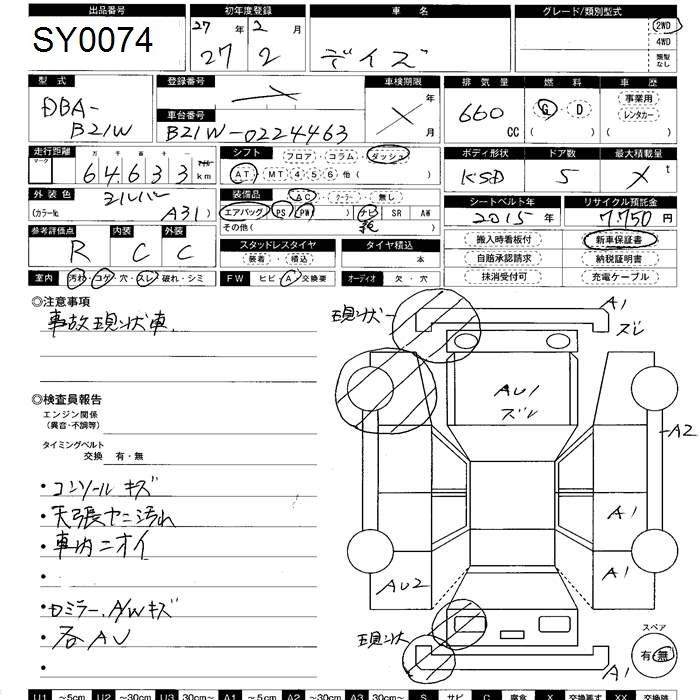 出品番号 初年度登録 車名 グレード/類別型式
SY0074 27年 2月 デイズ 2WD
27 2 4WD
類型なし
型式 登録番号 車検期限 排気量 燃料 車歴
DBA- 年 660 G・D 事業用
B21W 車台番号 月 CC ( ) レンタカー
B21W-0224463 ( )
走行距離 シフト フロア・コラム・ダッシュ ボディ形状 ドア数 最大積載量
マーク 十 万 千 百 十 マイル
64633 km AT・MT 4 5 6 ( ) 5 t
外装色 装備品 AC・クーラー・無し シートベルト年 リサイクル預託金
シルバー エアバッグ PS PW ナビ SR AW 2015年 7,750円
(カラーNo. A31) その他( )
参考評価点 内装 外装 スタッドレスタイヤ タイヤ積込 搬入時看板付 新車保証書
R C C 装着・積込 本 自賠承認請求 納税証明書
室内 汚れ・コゲ・穴・スレ・破れ・シミ FW ヒビ・A・交換要 オーディオ 欠・穴 抹消受付可 充電ケーブル
◎注意事項
事故現状車.
◎検査員報告
エンジン関係
(異音・不調等)
タイミングベルト
交換 有・無
・コンソールキズ
・天張ヤニ汚れ
・車内ニオイ
・
・Dミラー、A/Wキズ
・各AU
・
現状 A1
ズレ
AU1
ズレ
A2
A1
AU2 A1
現状
スペア
有・無
A1
U1 〜5cm U2 〜30cm U3 30cm〜 A1 〜5cm A2 〜30cm A3 30cm〜 S サビ C 腐食 X 交換要す XX 交換跡